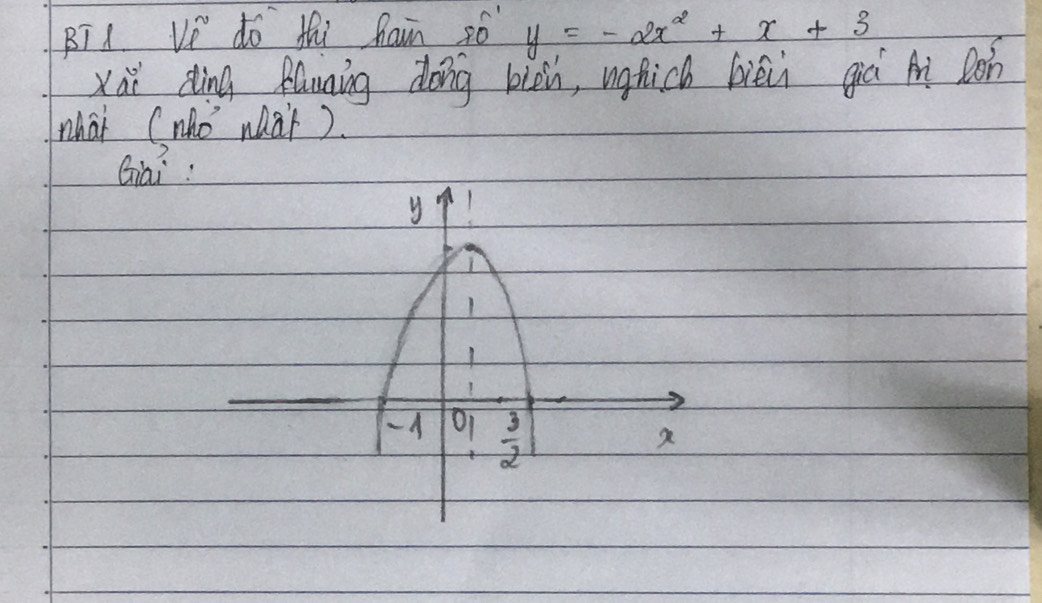 BT1. Vẽ đồ thị hàm số y = - 2x² + x + 3
Xác định khoảng đồng biến, nghịch biến giá trị lớn
nhất (nhỏ nhất).
Giải :
y
-1 0 3/2
x